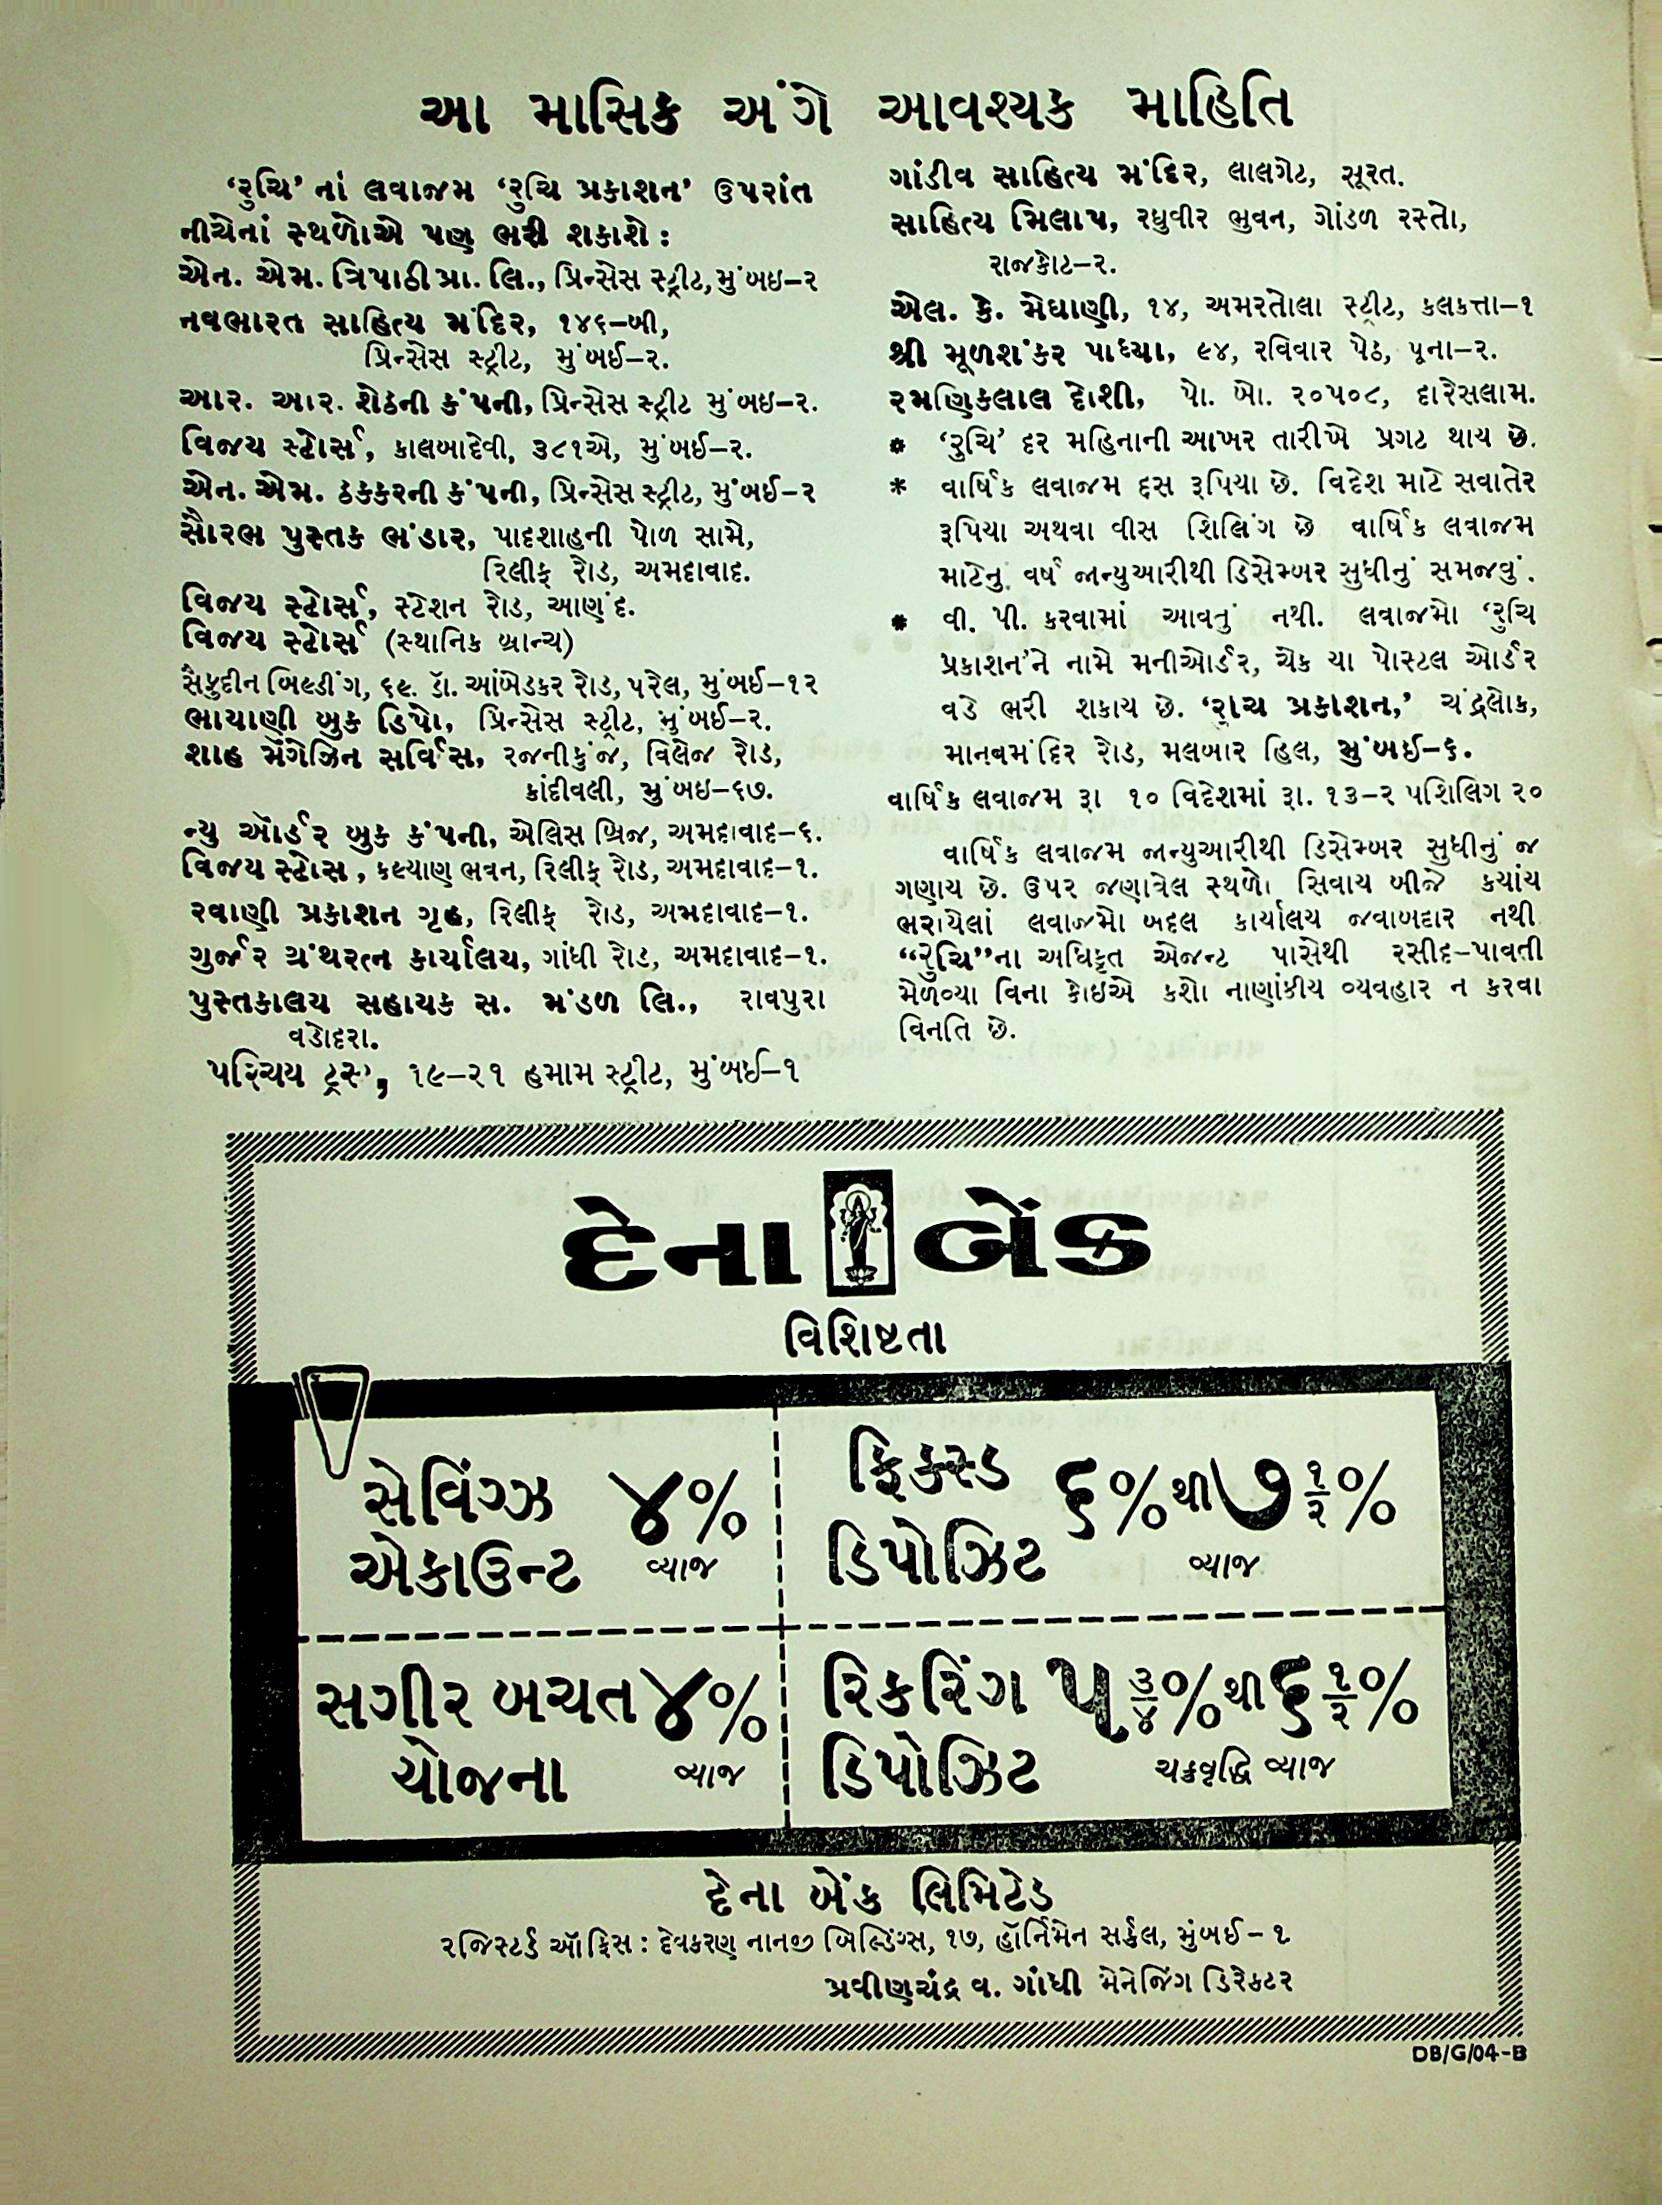 આ માસિક અંગે આવશ્યક માહિતિ
‘રુચિ’ નાં લવાજમ ‘રુચિ પ્રકાશન’ ઉપરાંત
નીચેનાં સ્થળોએ પણ ભરી શકાશે :
એન. એમ. ત્રિપાઠી પ્રા. લિ., પ્રિન્સેસ સ્ટ્રીટ, મુંબઇ–૨
નવભારત સાહિત્ય મંદિર, ૧૪૬–બી,
પ્રિન્સેસ સ્ટ્રીટ, મુંબઈ–૨.
આર. આર. શેઠની કંપની, પ્રિન્સેસ સ્ટ્રીટ મુંબઇ–૨.
વિજય સ્ટોર્સ, કાલબાદેવી, ૩૮૧એ, મુંબઈ–૨.
એન. એમ. ઠક્કરની કંપની, પ્રિન્સેસ સ્ટ્રીટ, મુંબઈ–૨
સૌરભ પુસ્તક ભંડાર, પાદશાહની પોળ સામે,
રિલીફ રોડ, અમદાવાદ.
વિજય સ્ટોર્સ, સ્ટેશન રોડ, આણંદ.
વિજય સ્ટોર્સ (સ્થાનિક બ્રાન્ચ)
સૈફુદીન બિલ્ડીંગ, ૬૯. ડૉ. આંબેડકર રોડ, પરેલ, મુંબઈ–૧૨
ભાયાણી બુક ડિપો, પ્રિન્સેસ સ્ટ્રીટ, મુંબઈ–૨.
શાહ મેગેઝિન સર્વિસ, રજનીકુંજ, વિલેજ રોડ,
કાંદીવલી, મુંબઇ–૬૭.
ન્યુ ઓર્ડર બુક કંપની, એલિસ બ્રિજ, અમદાવાદ–૬.
વિજય સ્ટોસ, કલ્યાણ ભવન, રિલીફ રોડ, અમદાવાદ–૧.
રવાણી પ્રકાશન ગૃહ, રિલીફ રોડ, અમદાવાદ–૧.
ગુર્જર ગ્રંથરત્ન કાર્યાલય, ગાંધી રોડ, અમદાવાદ–૧.
પુસ્તકાલય સહાયક સ. મંડળ લિ., રાવપુરા
વડોદરા.
પરિચય ટ્રસ્ટ, ૧૯–૨૧ હમામ સ્ટ્રીટ, મુંબઈ–૧
ગાંડીવ સાહિત્ય મંદિર, લાલગેટ, સૂરત.
સાહિત્ય મિલાપ, રઘુવીર ભુવન, ગોંડળ રસ્તો,
રાજકોટ–૨.
એલ. કે. મેઘાણી, ૧૪, અમરતોલા સ્ટ્રીટ, કલકત્તા–૧
શ્રી મૂળશંકર પાધ્યા, ૯૪, રવિવાર પેઠ, પૂના–૨.
રમણિકલાલ દોશી, પો. બો. ૨૦૫૦૮, દારેસલામ.
* ‘રુચિ’ દર મહિનાની આખર તારીખે પ્રગટ થાય છે.
* વાર્ષિક લવાજમ દસ રૂપિયા છે. વિદેશ માટે સવાતેર
રૂપિયા અથવા વીસ શિલિંગ છે વાર્ષિક લવાજમ
માટેનુ વર્ષ જાન્યુઆરીથી ડિસેમ્બર સુધીનું સમજવું.
* વી. પી. કરવામાં આવતું નથી. લવાજમો ‘રુચિ
પ્રકાશન’ને નામે મનીઓર્ડર, ચેક યા પોસ્ટલ ઓર્ડર
વડે ભરી શકાય છે. ‘રુચિ પ્રકાશન,’ ચંદ્રલોક,
માનવમંદિર રોડ, મલબાર હિલ, મુંબઈ–૬.
વાર્ષિક લવાજમ રૂા ૧૦ વિદેશમાં રૂા. ૧૩–૨૫ શિલિંગ ૨૦
વાર્ષિક લવાજમ જાન્યુઆરીથી ડિસેમ્બર સુધીનું જ
ગણાય છે. ઉપર જણાવેલ સ્થળો સિવાય બીજે કયાંય
ભરાયેલાં લવાજમો બદલ કાર્યાલય જવાબદાર નથી
“રુચિ”ના અધિકૃત એજન્ટ પાસેથી રસીદ–પાવતી
મેળવ્યા વિના કોઇએ કશો નાણાંકીય વ્યવહાર ન કરવા
વિનતિ છે.
દેના બેંક
વિશિષ્ટતા
સેવિંગ્ઝ એકાઉન્ટ ૪% વ્યાજ
ફિકસ્ડ ડિપોઝિટ ૬% થી ૭ ૧/૨ % વ્યાજ
સગીર બચત યોજના ૪% વ્યાજ
રિકરિંગ ડિપોઝિટ ૫ ૩/૪ % થી ૬ ૧/૨ % ચક્રવૃદ્ધિ વ્યાજ
દેના બેંક લિમિટેડ
રજિસ્ટર્ડ ઑફિસ : દેવકરણ નાનજી બિલ્ડિંગ્સ, ૧૭, હૉર્નિમેન સર્કલ, મુંબઈ – ૧
પ્રવીણચંદ્ર વ. ગાંધી મેનેજિંગ ડિરેકટર
DB/G/04-B